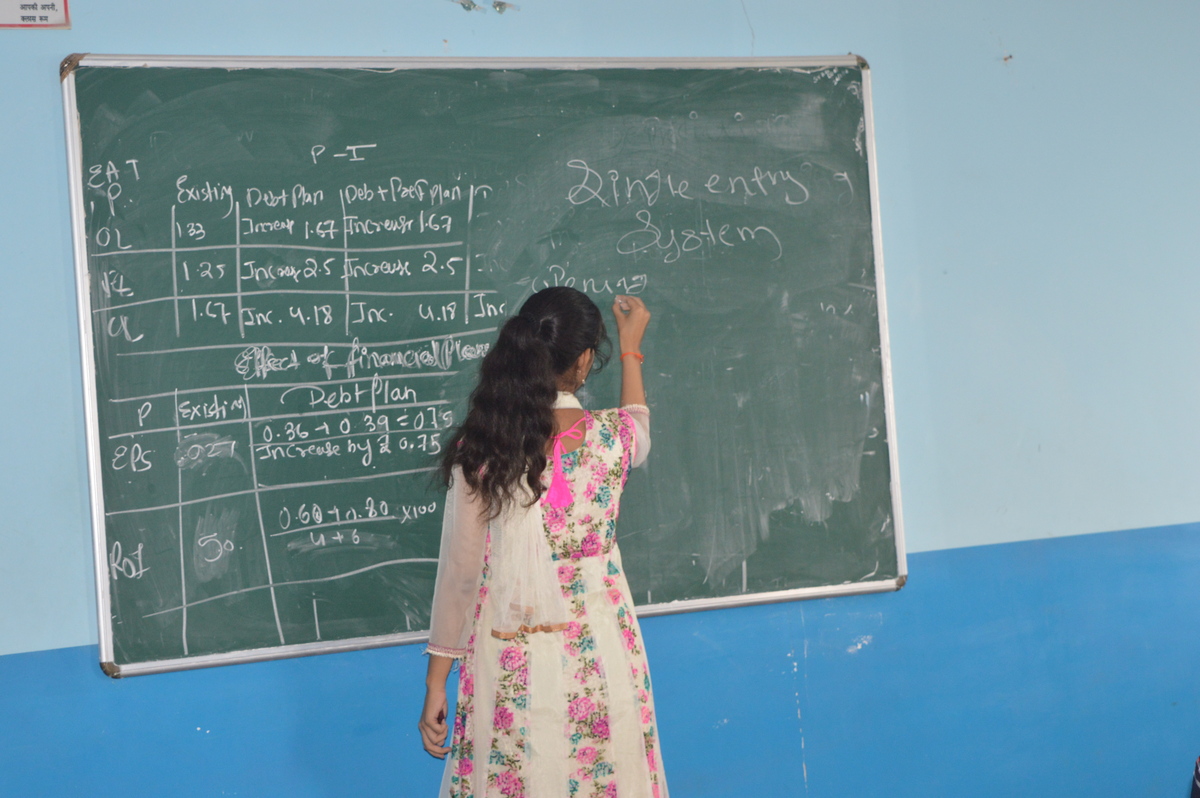 आपकी अपनी,
क्लास रूम
P-I
EAT
P. Existing Debt Plan Debt Pref Plan
OL 1.33 Increase 1.67 Increase 1.67
FL 1.25 Increase 2.5 Increase 2.5
CL 1.67 Inc. 4.18 Inc. 4.18 Inc
Effect of financial Plan
P Existing Debt Plan
0.36 + 0.39 = 0.75
EPS Increase by ₹ 0.75
0.60 + 0.80 x100
4 + 6
RoI 50.
Single entry
System